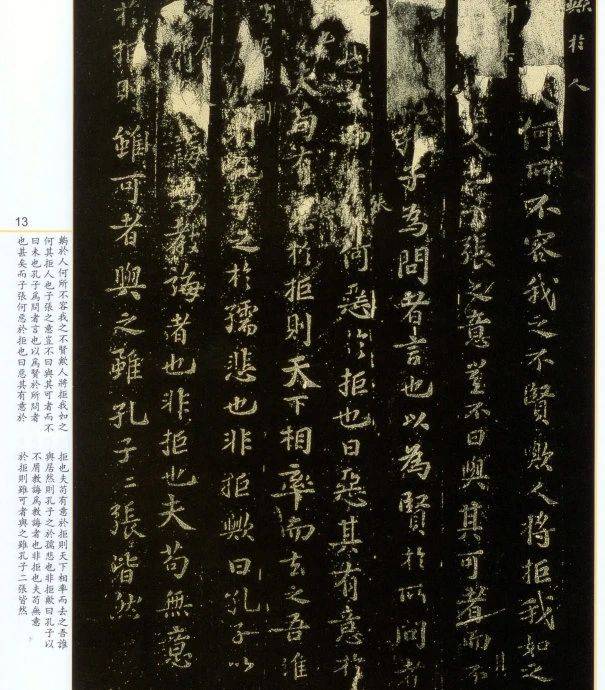 於人
人何所不容我之不賢歟人將拒我如之
人也子張之意豈不曰與其可者而不
孔子為問者言也以為賢於所問者
張
何惡於拒也曰惡其有意於
夫苟有於拒則天下相率而去之吾誰
則孔子之於孺悲也非拒歟曰孔子以
誨為教誨者也非拒也夫苟無意
於拒則雖可者與之雖孔子二張皆然
13
歟於人何所不容我之不賢歟人將拒我如之
何其拒人也子張之意豈不曰與其可者而不
曰未也孔子爲問者言也以爲賢於所問者
也甚矣而子張何惡於拒也曰惡其有意於
拒也夫苟有意於拒則天下相率而去之吾誰
與居然則孔子之於孺悲也非拒歟曰孔子以
不屑教誨爲教誨者也非拒也夫苟無意
於拒則雖可者與之雖孔子二張皆然